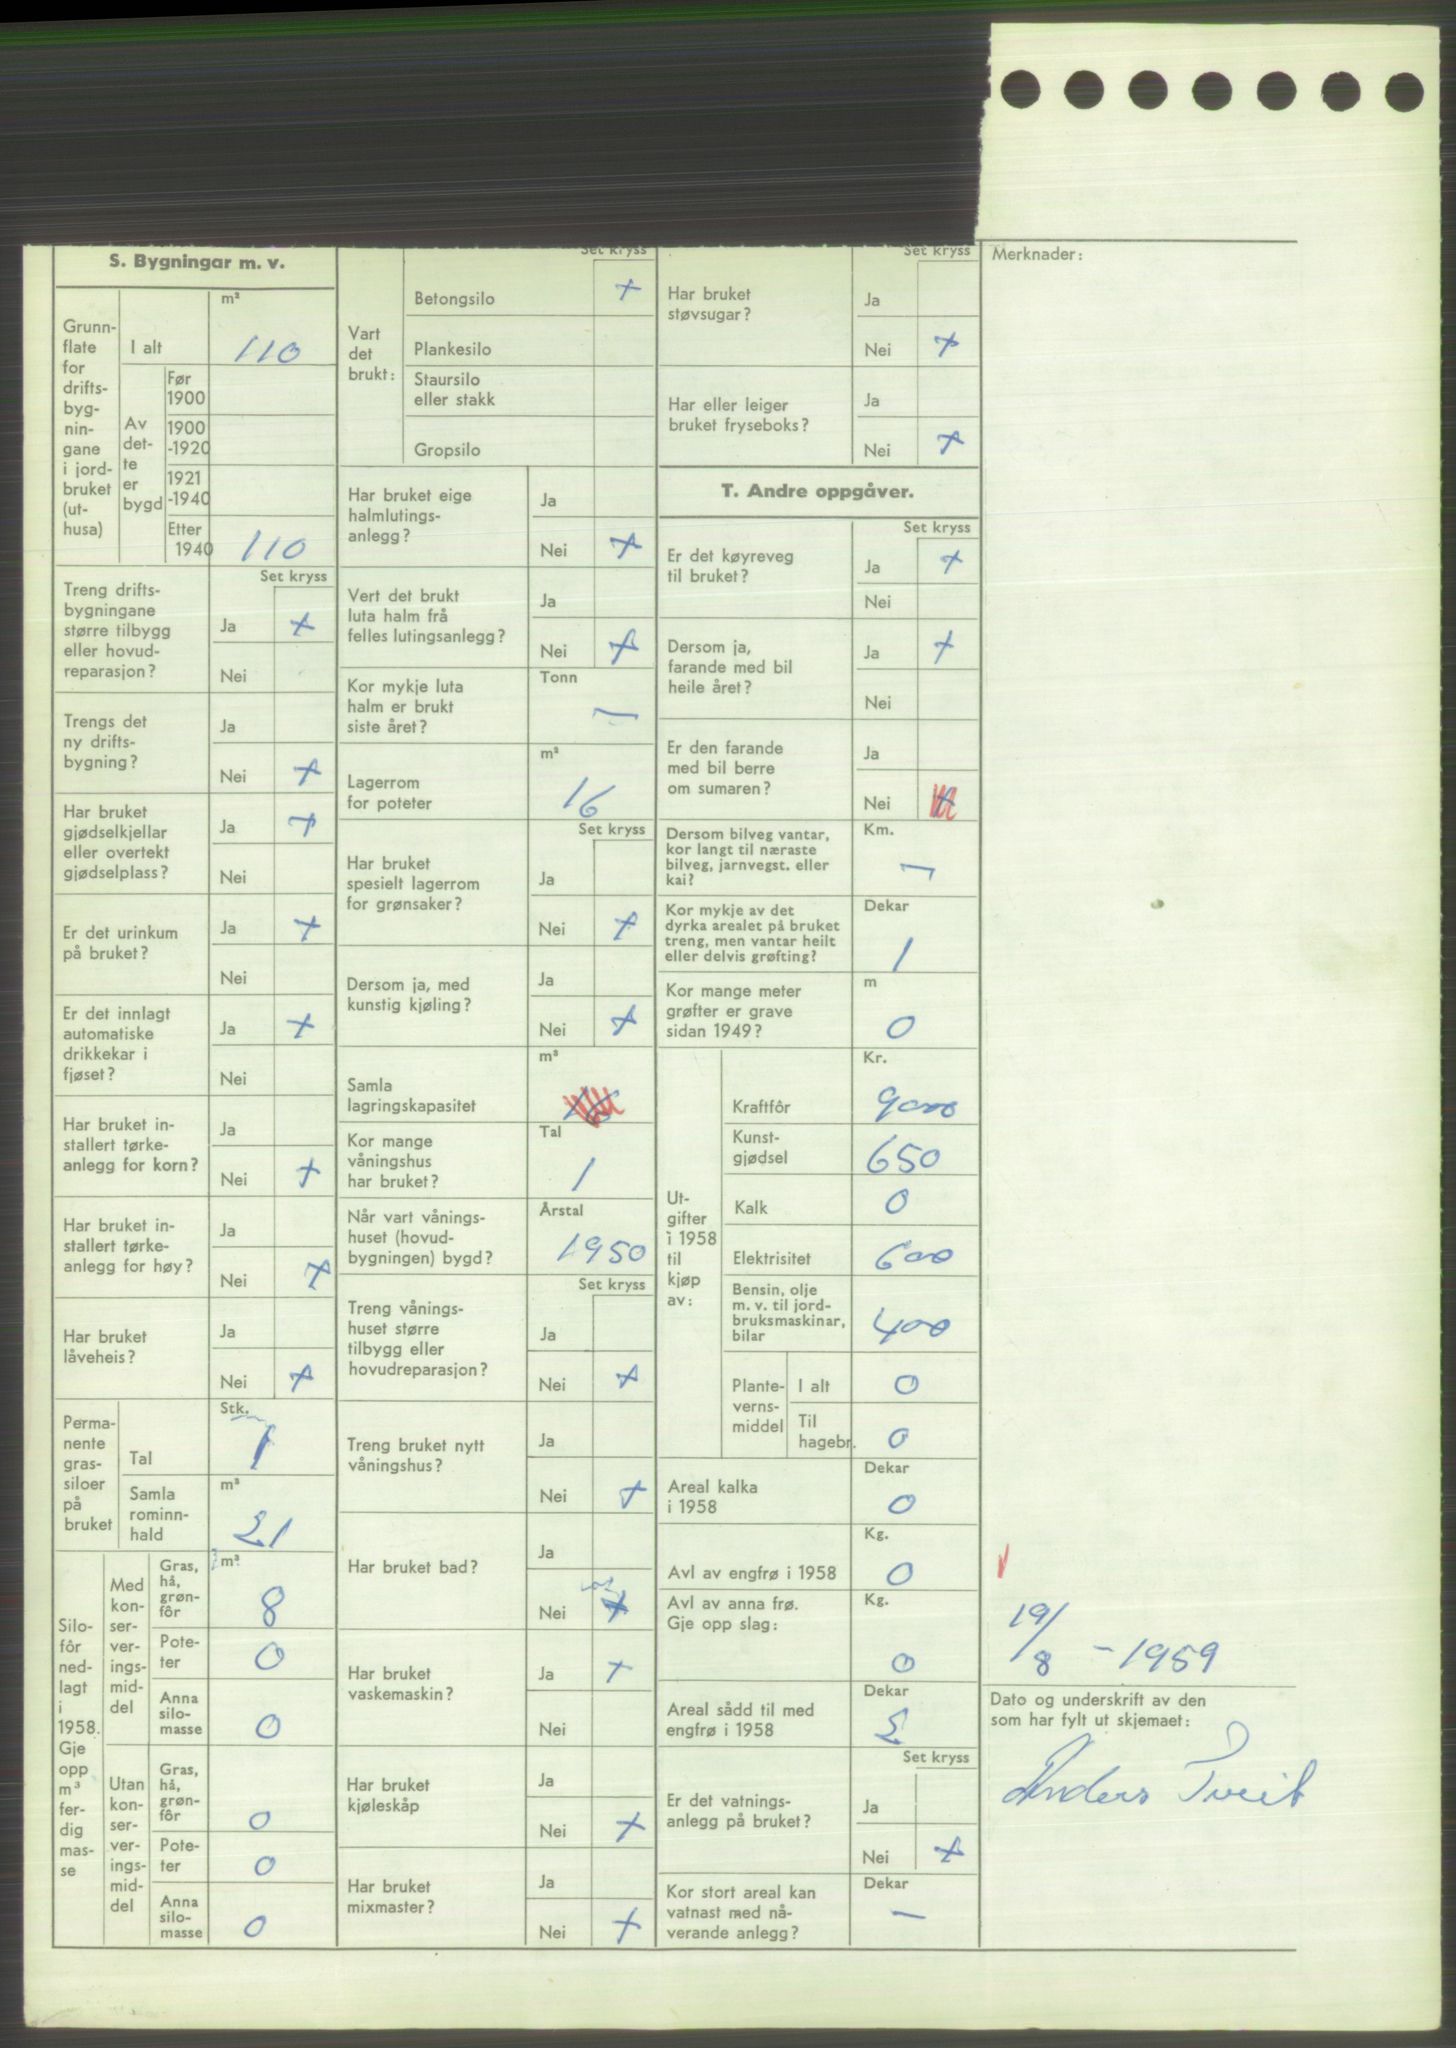 S. Bygningar m. v.
Grunn-
flate
for
drifts-
byg-
nin-
gane
i jord-
bruket
(ut-
husa)
m²
I alt 110
Av
det-
te
er
bygd
Før
1900
1900
-1920
1921
-1940
Etter
1940 110
Set kryss
Treng drifts-
bygningane
større tilbygg
eller hovud-
reparasjon?
Ja +
Nei
Trengs det
ny drifts-
bygning?
Ja
Nei +
Har bruket
gjødselkjellar
eller overtekt
gjødselplass?
Ja +
Nei
Er det urinkum
på bruket?
Ja +
Nei
Er det innlagt
automatiske
drikkekar i
fjøset?
Ja +
Nei
Har bruket in-
stallert tørke-
anlegg for korn?
Ja
Nei +
Har bruket in-
stallert tørke-
anlegg for høy?
Ja
Nei +
Har bruket
låveheis?
Ja
Nei +
Perma-
nente
gras-
siloer
på
bruket
Stk.
Tal 1
m³
Samla
rominn-
hald
21
Silo-
fôr
ned-
lagt
i
1958.
Gje
opp
m³
fer-
dig
mas-
se
Med
kon-
ser-
ver-
ings-
mid-
del
m³
Gras,
hå,
grøn-
fôr
8
Pote-
ter
0
Anna
silo-
masse
0
Utan
kon-
ser-
ver-
ings-
mid-
del
Gras,
hå,
grøn-
fôr
0
Pote-
ter
0
Anna
silo-
masse
0
Set kryss
Vart
det
brukt:
Betongsilo +
Plankesilo
Staursilo
eller stakk
Gropsilo
Har bruket eige
halmlutings-
anlegg?
Ja
Nei +
Vert det brukt
luta halm frå
felles lutingsanlegg?
Ja
Nei +
Kor mykje luta
halm er brukt
siste året?
Tonn
—
Lagerrom
for poteter
m³
16
Set kryss
Har bruket
spesielt lagerrom
for grønsaker?
Ja
Nei +
Dersom ja, med
kunstig kjøling?
Ja
Nei +
Samla
lagringskapasitet
m³
16
Kor mange
våningshus
har bruket?
Tal
1
Når vart vånings-
huset (hovud-
bygningen) bygd?
Årstal
1950
Set kryss
Treng vånings-
huset større
tilbygg eller
hovudreparasjon?
Ja
Nei +
Treng bruket nytt
våningshus?
Ja
Nei +
Har bruket bad?
Ja
Nei +
Har bruket
vaskemaskin?
Ja +
Nei
Har bruket
kjøleskåp
Ja
Nei +
Har bruket
mixmaster?
Ja
Nei +
Set kryss
Har bruket
støvsugar?
Ja
Nei +
Har eller leiger
bruket fryseboks?
Ja
Nei +
T. Andre oppgåver.
Set kryss
Er det køyreveg
til bruket?
Ja +
Nei
Dersom ja,
farande med bil
heile året?
Ja +
Nei
Er den farande
med bil berre
om sumaren?
Ja
Nei +
Dersom bilveg vantar,
kor langt til næraste
bilveg, jarnvegst. eller
kai?
Km.
—
Kor mykje av det
dyrka arealet på bruket
treng, men vantar heilt
eller delvis grøfting?
Dekar
1
Kor mange meter
grøfter er grave
sidan 1949?
m
0
Ut-
gifter
i 1958
til
kjøp
av:
Kr.
Kraftfôr 9000
Kunst-
gjødsel 650
Kalk 0
Elektrisitet 600
Bensin, olje
m. v. til jord-
bruksmaskinar,
bilar
400
Plante-
verns-
middel
I alt 0
Til
hagebr. 0
Areal kalka
i 1958
Dekar
0
Avl av engfrø i 1958
Kg.
0
Avl av anna frø.
Gje opp slag:
Kg.
0
Areal sådd til med
engfrø i 1958
Dekar
2
Set kryss
Er det vatnings-
anlegg på bruket?
Ja
Nei +
Kor stort areal kan
vatnast med nå-
verande anlegg?
Dekar
—
Merknader:
19/
/8 - 1959
Dato og underskrift av den
som har fylt ut skjemaet:
Anders Tveit